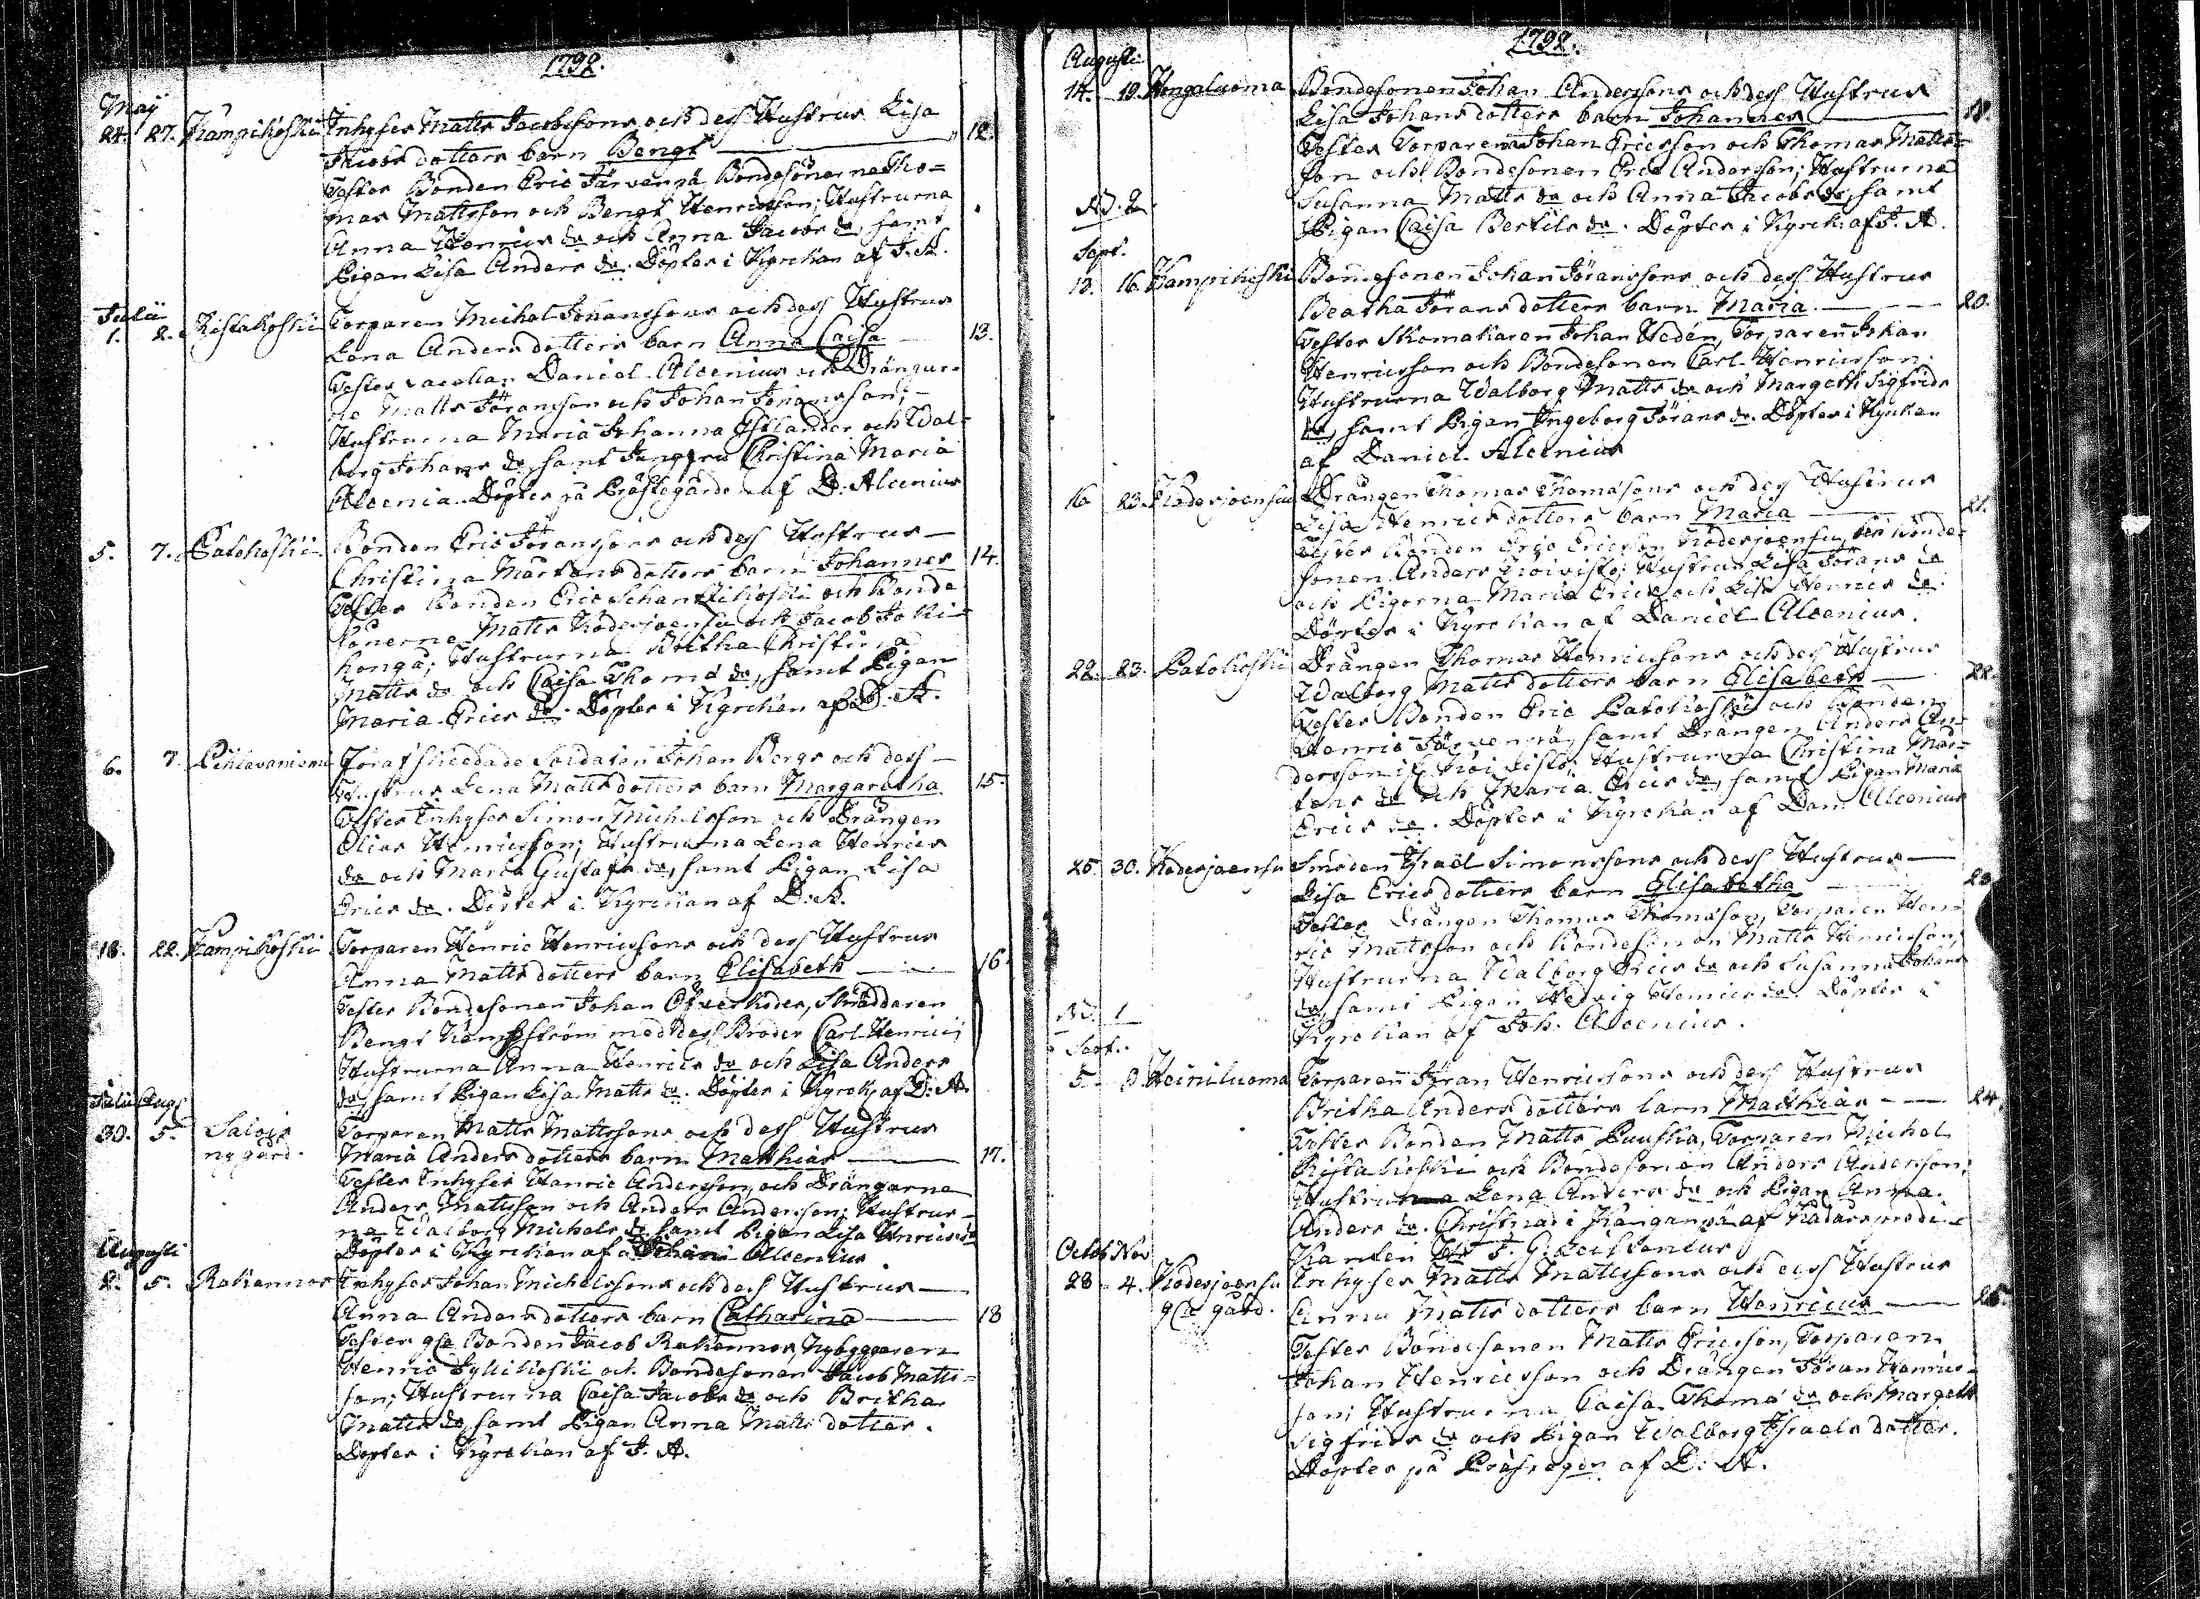 1792.
Maÿ
24. 27. Kampikoski Inhyses Matts Jacobssons och dess Hustrus Lisa
Jacobs dotters barn Bengt 12.
Testes Bonden Eric Järvenpä Bondesönerne Tho=
mas Mattsson och Bengt Henricsson; Hustrurna
Anna Henrics dr och Anna Jacobs dr, samt
Pigan Lisa Anders dr. Döptes i Kyrckan af J. A.
Julii
1. 2. Ristakoski Torparen Michel Johanssons och dess Hustrus
Lena Anders dotters barn Anna Caisa 13.
Testes Daniel Alcenius och Drängar=
ne Matts Göransson och Johan Johansson;
Hustrurna Maria Johanna Estlander och Wal=
borg Johans dr, samt Jungfru Christina Maria
Alcenia. Döptes på Prästegården af D. Alcenius
5. 7. Latokoski Bonden Eric Göranssons och dess Hustrus
Christina Mårtens dotters barn Johannes 14.
Testes Bonden Eric och Bonde
sönerne Matts Kodesjoensu och Jacob Joki=
konga; Hustrurna Britha Christina
Matts dr och Caisa Thomæ dr, samt Pigan
Maria Erics dr. Döptes i Kyrckan af D. A.
6. 7. Pihlavaniemi Förafskiedade Soldaten Johan Bergs och dess
Hustrus Lena Matts dotters barn Margaretha 15.
Testes Inhyses Simon Michelsson och Drängen
Elias Henricsson; Hustrurna Lena Henrics
dr och Maria Gustafs dr, samt Pigan Lisa
Erics dr. Döptes i Kyrckan af D. A.
18. 22. Kampikoski Torparen Henric Henricssons och dess Hustrus
Anna Matts dotters barn Elisabeth 16.
Testes Bondesonen Johan Öfverkoder, Skräddaren
Bengt Kempström med dess Broder Carl Henric;
Hustrurna Anna Henrics dr och Lisa Anders
dr, samt Pigan Lisa Matts dr. Döptes i Kyrck. af D. A.
Julii Aug.
30. 5. Salois Torparen Matts Mattssons och dess Hustrus
nygård. Maria Anders dotters barn Matthias 17.
Testes Inhyses Henric Andersson, och Drängarne
Anders Mattsson och Anders Andersson; Hustrur=
na Walborg Michels dr samt Pigan Lisa Henrics dr
Döptes i Kyrckan af Johan Alcenius
Augusti
2. 5. Rahkannor Inhyses Johan Michelssons och dess Hustrus
Anna Anders dotters barn Catharina 18
Testes gla Bonden Jacob Rahkannor, Nybyggaren
Henric Jyllikoski och Bondesonen Jacob Matts=
son; Hustrurna Caisa Jacobs dr och Britha
Matts dr, samt Pigan Anna Matts dotter.
Döptes i Kyrckan af J. A.
1792.
Augusti
14. 19. Hongaluoma Bondesonen Johan Anderssons och dess Hustrus
Lisa Johans dotters barn Johannes 19.
Testes Torparen Johan Ericsson och Thomas Matts=
son och Bondesonen Eric Andersson; Hustrurna
Susanna Matts dr och Anna Jacobs dr, samt
Pigan Caisa Bertils dr. Döptes i Kyrck. af J. A.
Sept.
13. 16 Kampikoski Bondesonen Johan Göranssons och dess Hustrus
Beatha Görans dotters barn Maria. 20.
Testes Skomakaren Johan Hedén, Torparen Johan
Henricsson och Bondesonen Carl Henricsson;
Hustrurna Walborg Matts dr och Margeth Sigfrids
dr, samt Pigan Ingeborg Görans dr. Döptes i Kyrckan
af Daniel Alcenius
16 23. Kodesjoensu Drängen Thomas Thomassons och dess Hustrus
Lisa Henrics dotters barn Maria 21.
Testes Bonden Eric Ericsson Kodesjoensu, och Bonde=
sonen Anders Koivisto; Hustrun Lisa Görans dr
och Pigorna Maria Erics och Lisa Henrics dr.
Döptes i Kyrckan af Daniel Alcenius.
22. 23. Latokoski Drängen Thomas Henricssons och dess Hustrus
Walborg Matts dotters barn Elisabeth 22.
Testes Bonden Eric Latokoski och Bonden
Henric Järvenpä, samt Drängen Anders An=
dersson Koivisto; Hustrurna Christina Mår=
tens dr och Maria Erics dr, samt Pigan Maria
Erics dr. Döptes i Kyrckan af Dan. Alcenius
25 30. Kodesjoensu Smeden Israël Simonssons och dess Hustrus
Lisa Erics dotters barn Elisabetha 23
Testes Drängen Thomas Thomasson, Torparen Hen=
ric Mattsson och Bondesonen Matts Henricsson;
Hustrurna Walborg Erics dr och Susanna Johans
dr, samt Pigan Hedvig Henrics dr. Döptes i
Kyrckan af Joh. Alcenius.
Sept.
5. 9 Heiniluoma Torparen Göran Henricssons och dess Hustrus
Britha Anders dotters barn Matthias 24.
Testes Bonden Matts Puuska, Torparen Michel
Ristakoski och Bondesonen Anders Andersson;
Hustru Lena Anders dr och Pigan Anna
Anders dr. Christnad i Kanganpä af
Octob Nov
28 4. Kodesjoensu Inhyses Matts Mattssons och dess Hustrus
gla gård. Anna Matts dotters barn Henricus 25.
Testes Bondesonen Matts Ericsson, Torparen
Johan Henricsson och Drängen Göran Henrics=
son; Hustrurna Caisa Thomæ dr och Margeth
Sigfrids dr och Pigan Walborg Israels dotter.
Döptes på Prästegdn af D. A.